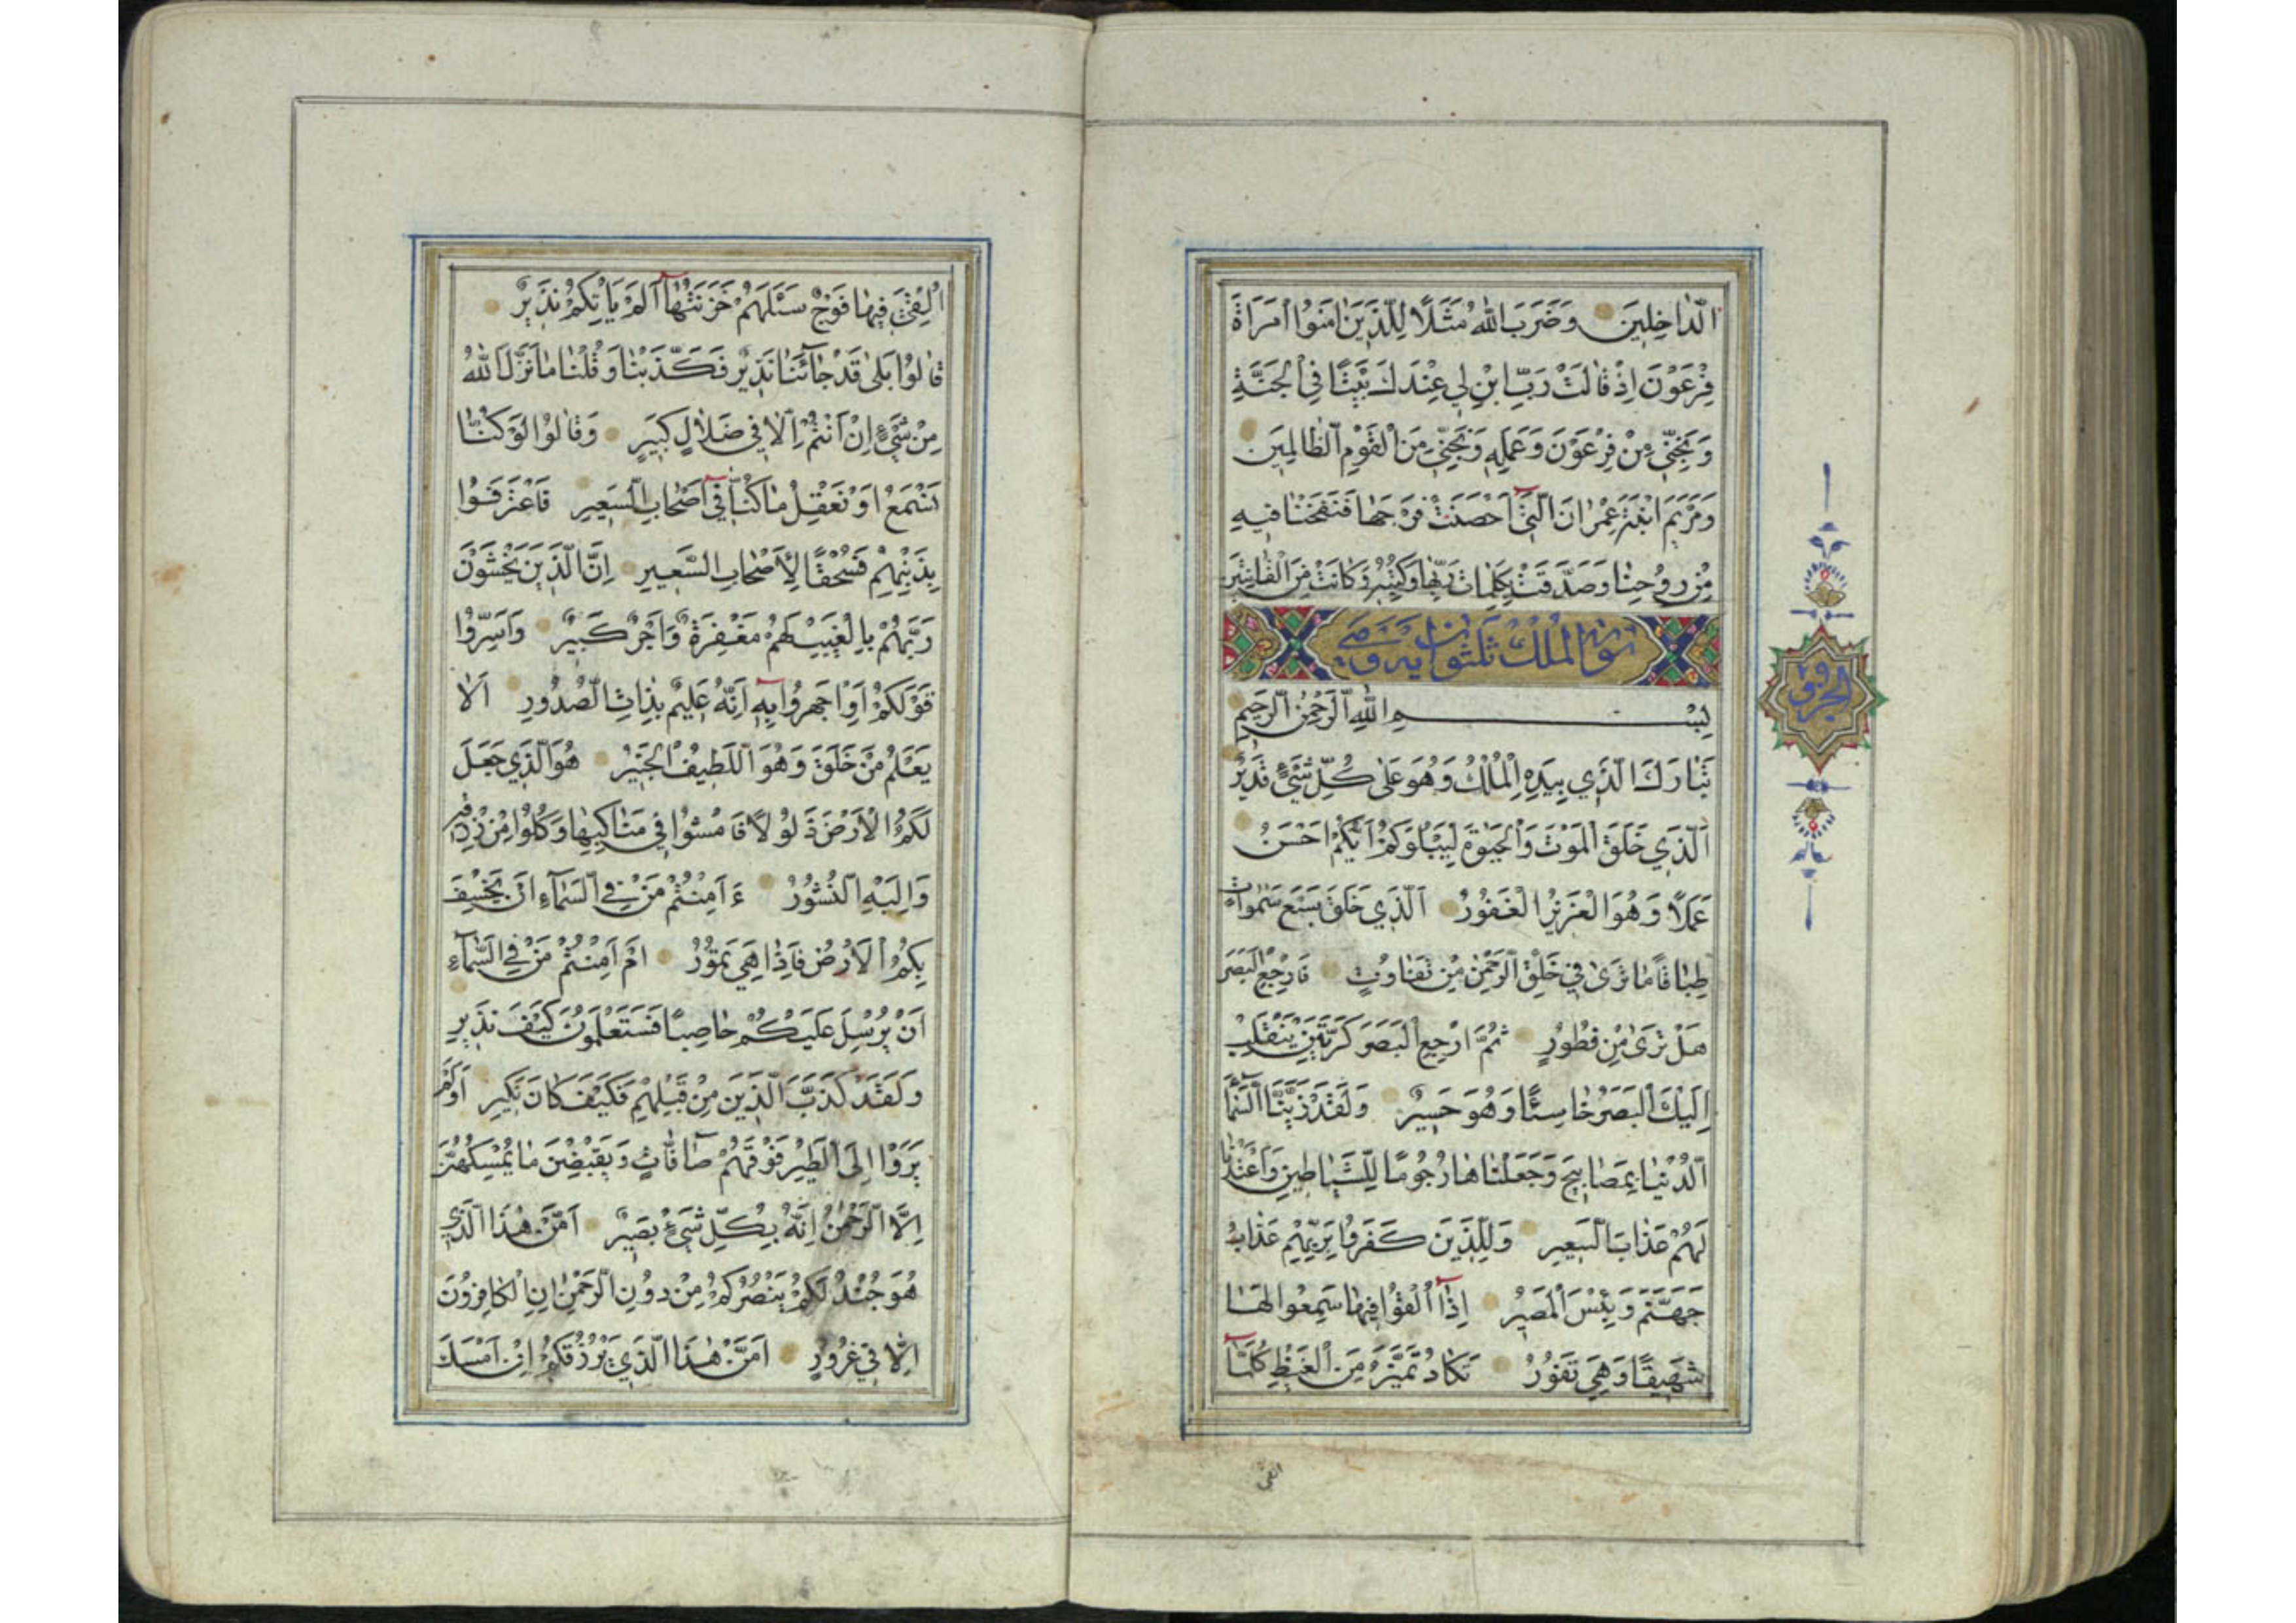 الدّٰاخِلِينَ وَضَرَبَ اللهُ مَثَلًا لِلَّذِينَ اٰمَنُوا امْرَاَةَ
فِرْعَوْنَ اِذْ قٰالَتْ رَبِّ ابْنِ لِي عِنْدَكَ بَيْتًا فِي الْجَنَّةِ
وَنَجِّنِي مِنْ فِرْعَوْنَ وَعَمَلِهِ وَنَجِّنِي مِنَ الْقَوْمِ الظّٰالِمِينَ
وَمَرْيَمَ ابْنَتَ عِمْرٰانَ الَّتِي اَحْصَنَتْ فَرْجَهٰا فَنَفَخْنٰا فِيهِ
مِنْ رُوحِنٰا وَصَدَّقَتْ بِكَلِمٰاتِ رَبِّهٰا وَكُتُبِهِ وَكٰانَتْ مِنَ الْقٰانِتِينَ
سورة الملك ثلثون آية وهي
الجزو ٢٩
بِسْمِ اللهِ الرَّحْمٰنِ الرَّحِيمِ
تَبٰارَكَ الَّذِي بِيَدِهِ الْمُلْكُ وَهُوَ عَلٰى كُلِّ شَيْءٍ قَدِيرٌ
اَلَّذِي خَلَقَ الْمَوْتَ وَالْحَيٰوةَ لِيَبْلُوَكُمْ اَيُّكُمْ اَحْسَنُ
عَمَلًا وَهُوَ الْعَزِيزُ الْغَفُورُ اَلَّذِي خَلَقَ سَبْعَ سَمٰوٰاتٍ
طِبٰاقًا مٰا تَرٰى فِي خَلْقِ الرَّحْمٰنِ مِنْ تَفٰاوُتٍ فَارْجِعِ الْبَصَرَ
هَلْ تَرٰى مِنْ فُطُورٍ ثُمَّ ارْجِعِ الْبَصَرَ كَرَّتَيْنِ يَنْقَلِبْ
اِلَيْكَ الْبَصَرُ خٰاسِئًا وَهُوَ حَسِيرٌ وَلَقَدْ زَيَّنَّا السَّمٰآءَ
الدُّنْيٰا بِمَصٰابِيحَ وَجَعَلْنٰاهٰا رُجُومًا لِلشَّيٰاطِينِ وَاَعْتَدْنٰا
لَهُمْ عَذٰابَ السَّعِيرِ وَلِلَّذِينَ كَفَرُوا بِرَبِّهِمْ عَذٰابُ
جَهَنَّمَ وَبِئْسَ الْمَصِيرُ اِذٰآ اُلْقُوا فِيهٰا سَمِعُوا لَهٰا
شَهِيقًا وَهِيَ تَفُورُ تَكٰادُ تَمَيَّزُ مِنَ الْغَيْظِ كُلَّمٰآ
القي
اُلْقِيَ فِيهٰا فَوْجٌ سَئَلَهُمْ خَزَنَتُهٰآ اَلَمْ يَاْتِكُمْ نَذِيرٌ
قٰالُوا بَلٰى قَدْ جٰآئَنٰا نَذِيرٌ فَكَذَّبْنٰا وَقُلْنٰا مٰا نَزَّلَ اللهُ
مِنْ شَيْءٍ اِنْ اَنْتُمْ اِلّٰا فِي ضَلٰالٍ كَبِيرٍ وَقٰالُوا لَوْ كُنّٰا
نَسْمَعُ اَوْ نَعْقِلُ مٰا كُنّٰا فِيٓ اَصْحٰابِ السَّعِيرِ فَاعْتَرَفُوا
بِذَنْبِهِمْ فَسُحْقًا لِاَصْحٰابِ السَّعِيرِ اِنَّ الَّذِينَ يَخْشَوْنَ
رَبَّهُمْ بِالْغَيْبِ لَهُمْ مَغْفِرَةٌ وَاَجْرٌ كَبِيرٌ وَاَسِرُّوا
قَوْلَكُمْ اَوِ اجْهَرُوا بِهِٓ اِنَّهُ عَلِيمٌ بِذٰاتِ الصُّدُورِ اَلٰا
يَعْلَمُ مَنْ خَلَقَ وَهُوَ اللَّطِيفُ الْخَبِيرُ هُوَ الَّذِي جَعَلَ
لَكُمُ الْاَرْضَ ذَلُولًا فَامْشُوا فِي مَنٰاكِبِهٰا وَكُلُوا مِنْ رِزْقِهِ
وَاِلَيْهِ النُّشُورُ ءَاَمِنْتُمْ مَنْ فِي السَّمٰآءِ اَنْ يَخْسِفَ
بِكُمُ الْاَرْضَ فَاِذٰا هِيَ تَمُورُ اَمْ اَمِنْتُمْ مَنْ فِي السَّمٰآءِ
اَنْ يُرْسِلَ عَلَيْكُمْ حٰاصِبًا فَسَتَعْلَمُونَ كَيْفَ نَذِيرِ
وَلَقَدْ كَذَّبَ الَّذِينَ مِنْ قَبْلِهِمْ فَكَيْفَ كٰانَ نَكِيرِ اَوَلَمْ
يَرَوْا اِلَى الطَّيْرِ فَوْقَهُمْ صٰٓافّٰاتٍ وَيَقْبِضْنَ مٰا يُمْسِكُهُنَّ
اِلَّا الرَّحْمٰنُ اِنَّهُ بِكُلِّ شَيْءٍ بَصِيرٌ اَمَّنْ هٰذَا الَّذِي
هُوَ جُنْدٌ لَكُمْ يَنْصُرُكُمْ مِنْ دُونِ الرَّحْمٰنِ اِنِ الْكٰافِرُونَ
اِلّٰا فِي غُرُورٍ اَمَّنْ هٰذَا الَّذِي يَرْزُقُكُمْ اِنْ اَمْسَكَ